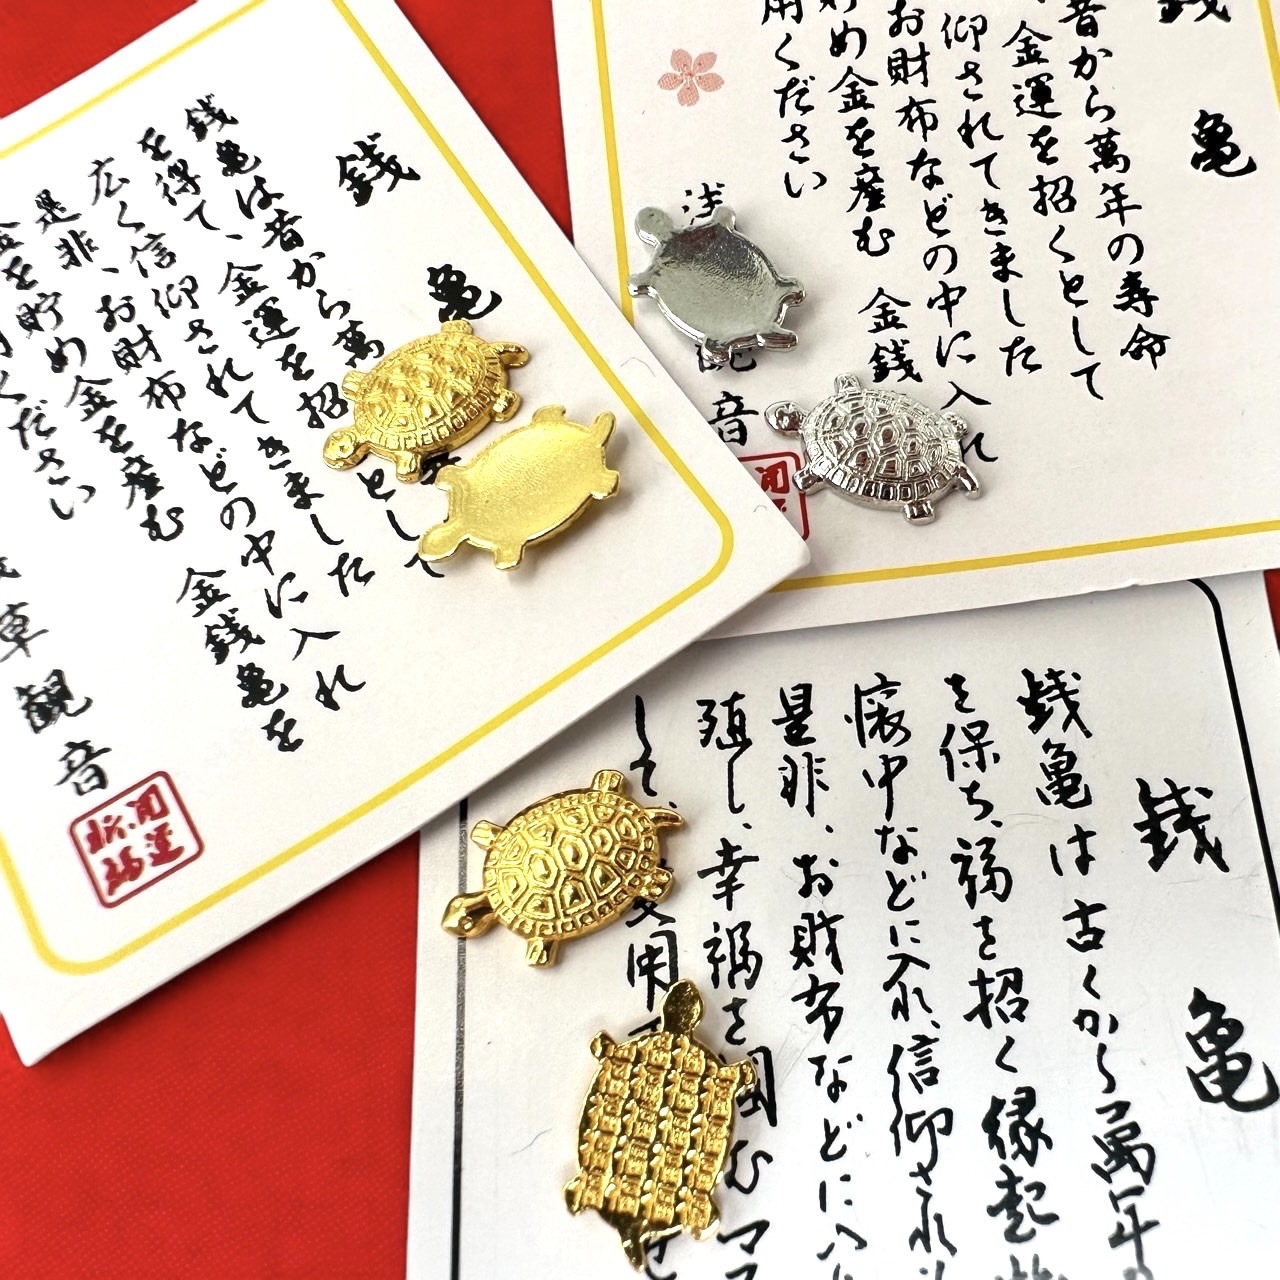 銭亀
銭亀は昔から萬
を得て、金運を招 として
広く信仰されてきました
是非、お財布などの中に入れ
金を貯め金を産む 金銭亀を
くださ い
観音
開運
招福
銭亀
昔から萬年の寿命
金運を招くとして
仰されてきました
お財布などの中に入れ
貯め金を産む 金銭
用ください
浅
音
開
銭亀
銭亀は古くから萬年
を保ち、福を招く縁起
懐中などに入れ、信仰され
是非、お財布などに入
殖し、幸福を
して、
用